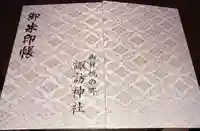 の郷
諏訪神社
御朱印帳